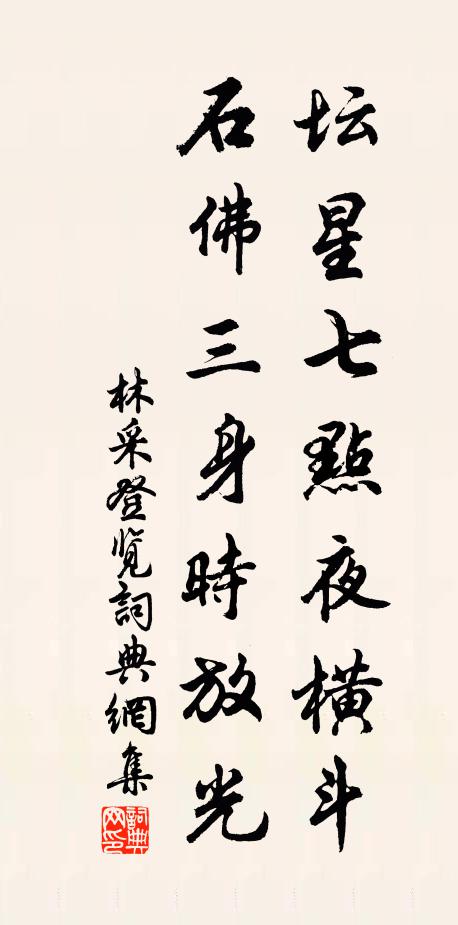 坛星七點夜橫斗
石佛三身時放光
林采登览詞典網集
詞典網印